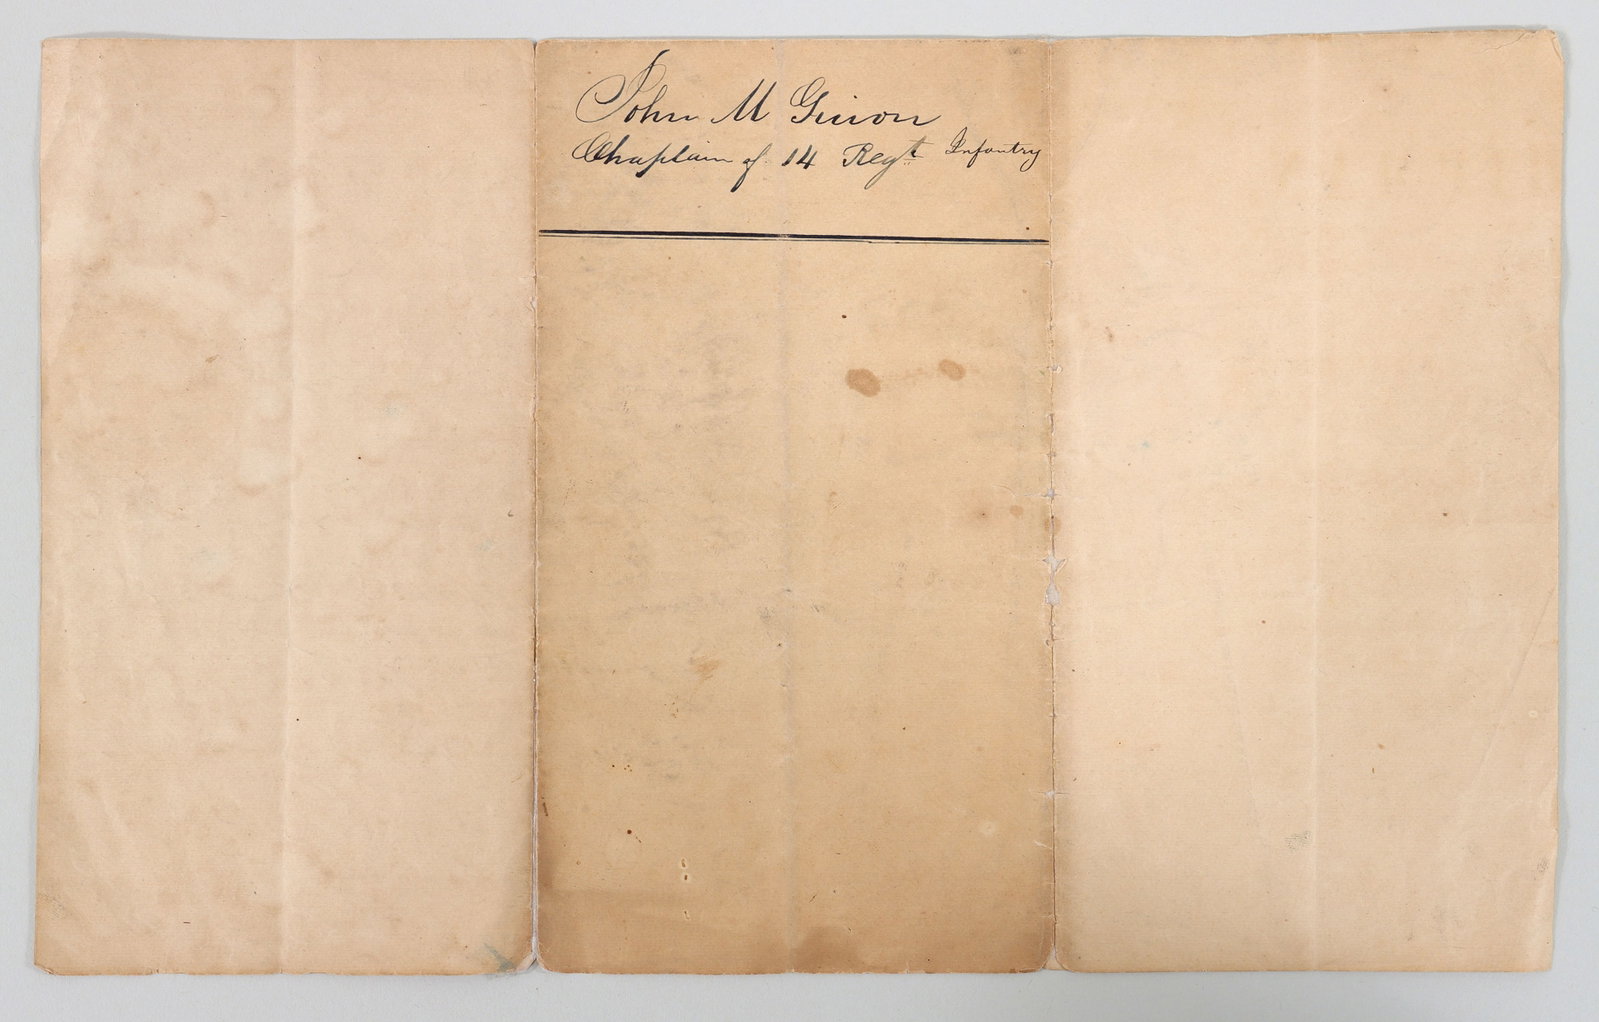 John M Guion
Chaplain of 14 Regt Infantry